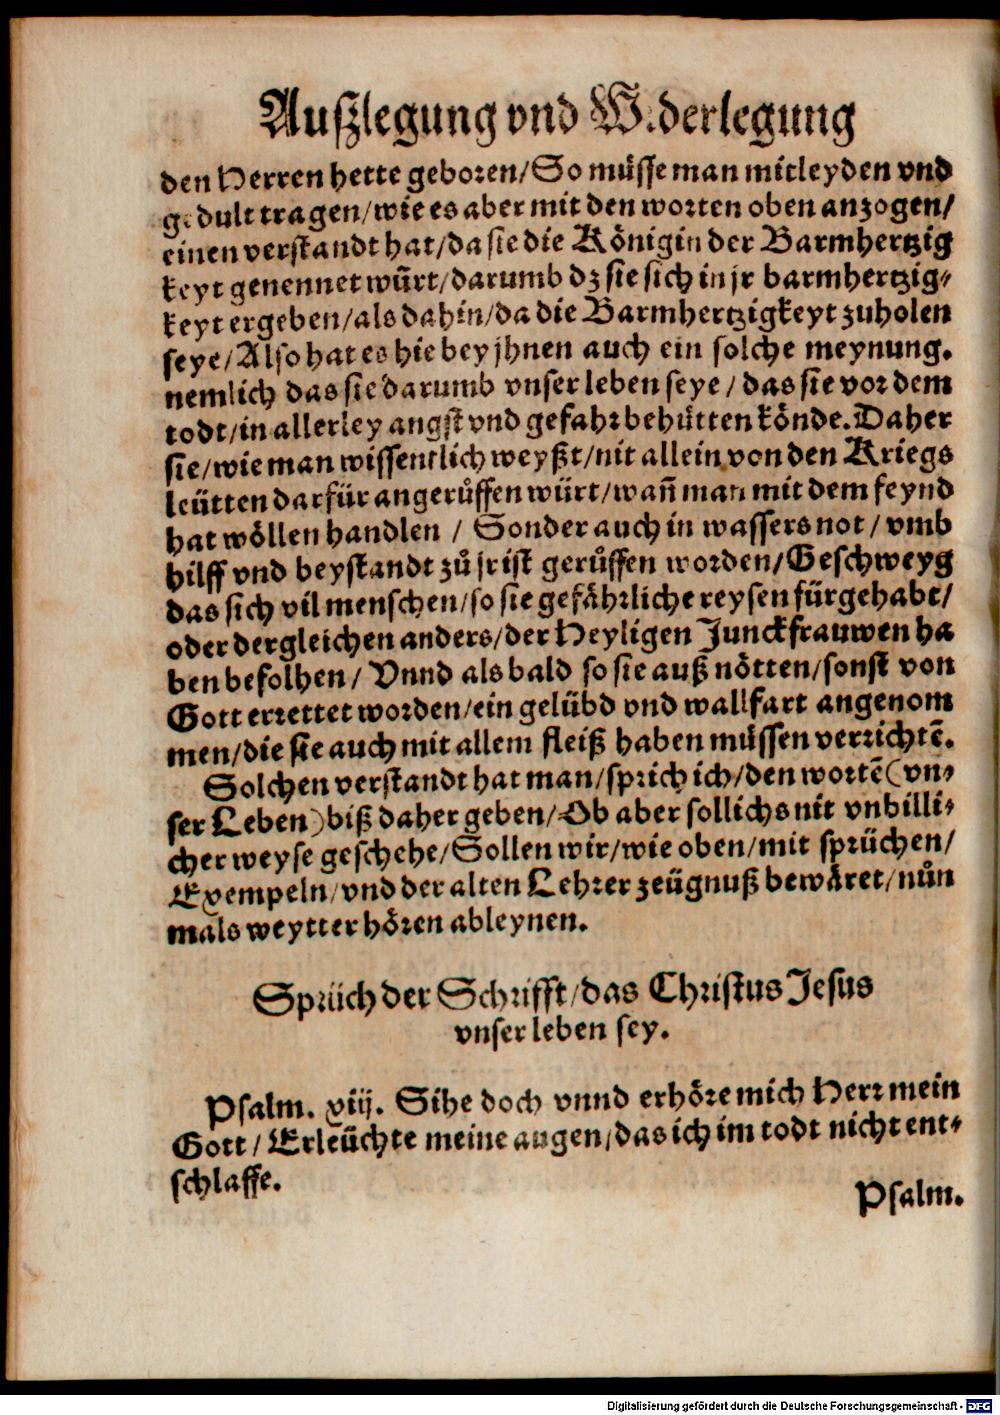 Außlegung vnd Widerlegung
den Herren hette geboren/So müsse man mitleyden vnd
gedult tragen/wie es aber mit den worten oben anzogen/
einen verstandt hat/da sie die Königin der Barmhertzig
keyt genennet würt/darumb dz sie sich in jr barmhertzig-
keyt ergeben/als dahin/da die Barmhertzigkeyt zuholen
seye/Also hat es hie bey jhnen auch ein solche meynung.
nemlich das sie darumb vnser leben seye/das sie vor dem
todt/in allerley angst vnd gefahr behütten könde. Daher
sie/wie man wissentlich weyßt/nit allein von den Kriegs
leütten darfür angerůffen würt/wañ man mit dem feynd
hat wöllen handlen / Sonder auch in wassers not / vmb
hilff vnd beystandt zů jr ist gerůffen worden/Geschweyg
das sich vil menschen/so sie gefährliche reysen fürgehabt/
oder dergleichen anders/der Heyligen Junckfrauwen ha
ben befolhen/ Vnnd als bald so sie auß nötten/sonst von
Gott errettet worden/ein gelübd vnd wallfart angenom
men/die sie auch mit allem fleiß haben müssen verrichtē.
Solchen verstandt hat man/sprich ich/den wortē (vn-
ser Leben) biß daher geben/Ob aber sollichs nit vnbilli-
cher weyse geschehe/Sollen wir/wie oben/mit sprüchen/
Exempeln/vnd der alten Lehrer zeügnuß bewäret/nůn
mals weytter hören ableynen.
Sprüch der Schrifft/das Christus Jesus
vnser leben sey.
Psalm. xiij. Sihe doch vnnd erhöre mich Herr mein
Gott/Erleüchte meine augen/das ich im todt nicht ent-
schlaffe.
Psalm.
Digitalisierung gefördert durch die Deutsche Forschungsgemeinschaft - DFG